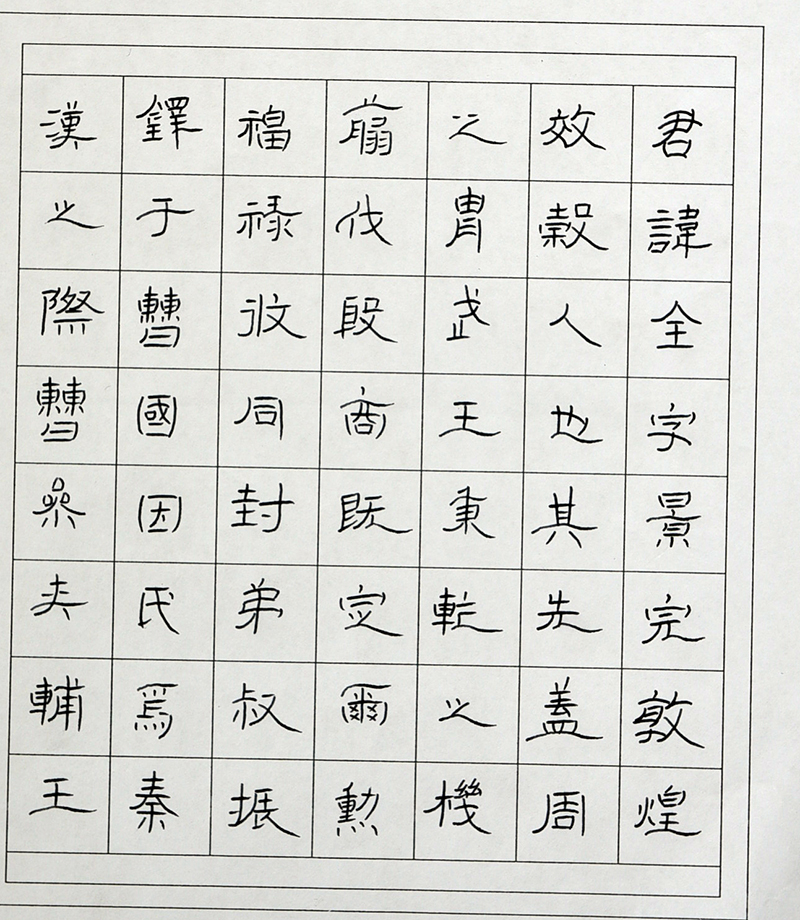 君諱全字景完敦煌
效穀人也其先蓋周
之胄武王秉乾之機
翦伐殷商既定爾勲
福祿攸同封弟叔振
鐸于曹國因氏焉秦
漢之際曹參夾輔王